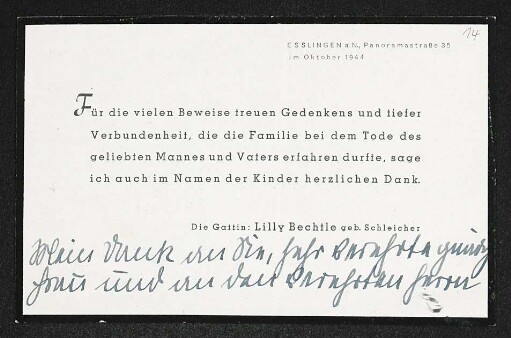 14
ESSLINGEN a.N., Panoramastraße 35
im Oktober 1944
Für die vielen Beweise treuen Gedenkens und tiefer
Verbundenheit, die die Familie bei dem Tode des
geliebten Mannes und Vaters erfahren durfte, sage
ich auch im Namen der Kinder herzlichen Dank.
Die Gattin: Lilly Bechtle geb. Schleicher
Mein Dank an Sie, sehr verehrte gnädg
Frau und an den verehrten Herrn